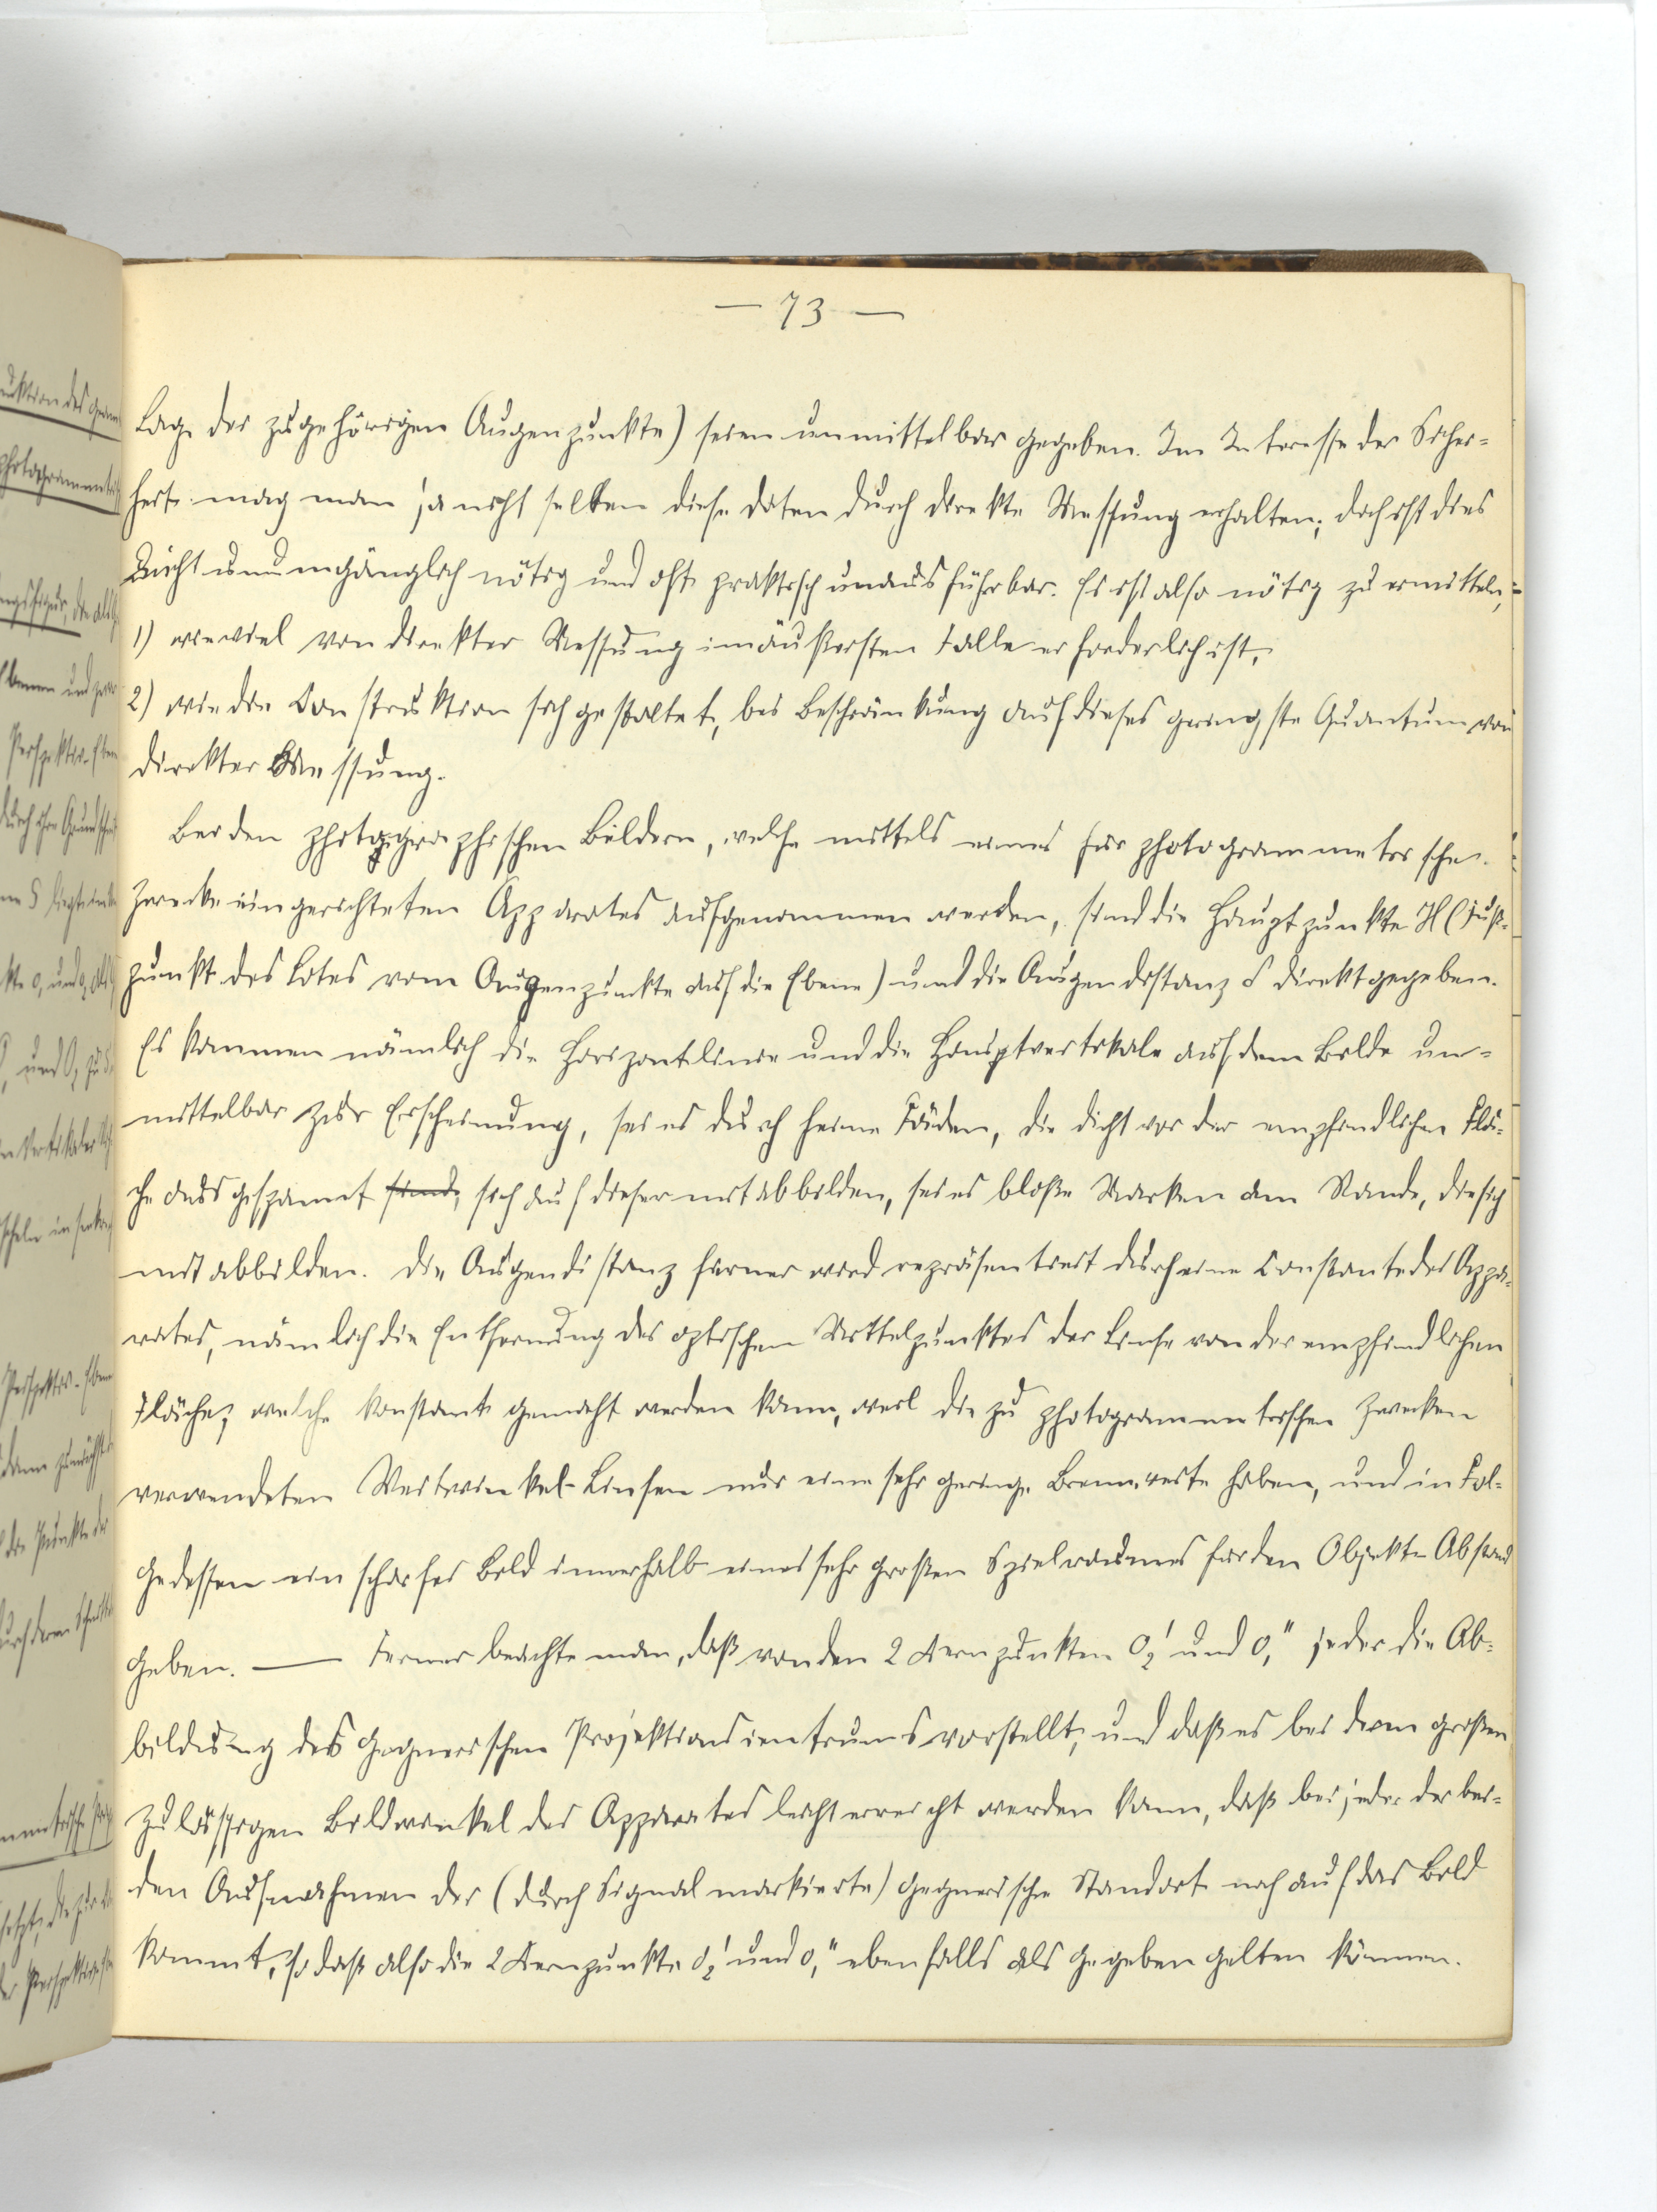 — 73 —
Lage der zugehörigen Augenpunkte) seien unmittelbar gegeben. Im Interesse der Sicher-
heit mag man ja nicht selten diese Daten durch direkte Messung erhalten; doch ist dies
nicht unumgänglich nötig und oft praktisch unausführbar. Es ist also nötig zu ermitteln,
1) wieviel von direkter Messung im äußersten Falle erforderlich ist,
2) wie die Construktion sich gestaltet, bei Beschränkung auf dieses geringste Quantum von
direkter Messung.
Bei den photographischen Bildern, welche mittels eines für photogrammetrische
Zwecke eingerichteten Apparates aufgenommen werden, sind die Hauptpunkte H (Fuß-
punkt des Lotes vom Augenpunkte auf die Ebene) und die Augendistanz δ direkt gegeben.
Es kommen nämlich die Horizontlinie und die Hauptvertikale auf dem Bilde un-
mittelbar zur Erscheinung, sei es durch feine Fäden, die dicht vor der empfindlichen Flä-
che ausgespannt sind, sich auf dieser mitabbilden, sei es bloße Marken am Rande, die sich
mitabbilden. Die Augendistanz ferner wird repräsentiert durch eine Constante des Appa-
rates, nämlich die Entfernung des optischen Mittelpunktes der Linse von der empfindlichen
Fläche; welche konstant gemacht werden kann, weil die zu photogrammetrischen Zwecken
verwendeten Weitwinkel-Linsen nur eine sehr geringe Brennweite haben, und in Fol-
gedessen ein scharfes Bild innerhalb eines sehr großen Spielraumes für den Objekt-Abstand
geben. — Ferner beachte man, daß von den 2 Kernpunkten O₂' und O₁" jeder die Ab-
bildung des gegnerischen Projektionscentrums vorstellt, und daß es bei dem großen
zulässigen Bildwinkel des Apparates leicht erreicht werden kann, daß bei jeder der bei-
den Aufnahmen der (durch Signal markierte) gegnerische Standort noch auf das Bild
kommt, so daß also die 2 Kernpunkte O₂' und O₁" ebenfalls als gegeben gelten können.